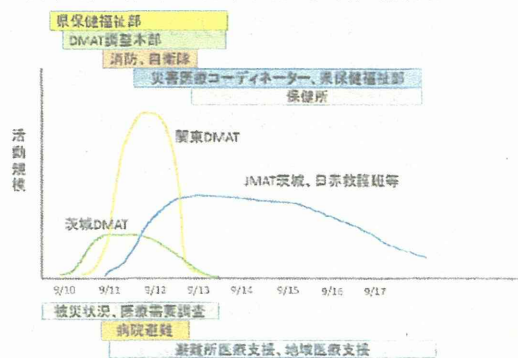 県保健福祉部
DMAT調整本部
消防、自衛隊
災害医療コーディネーター、県保健福祉部
保健所
活動規模
関東DMAT
JMAT茨城、日赤救護班等
茨城DMAT
9/10 9/11 9/12 9/13 9/14 9/15 9/16 9/17
被災状況、医療需要調査
病院避難
避難所医療支援、地域医療支援